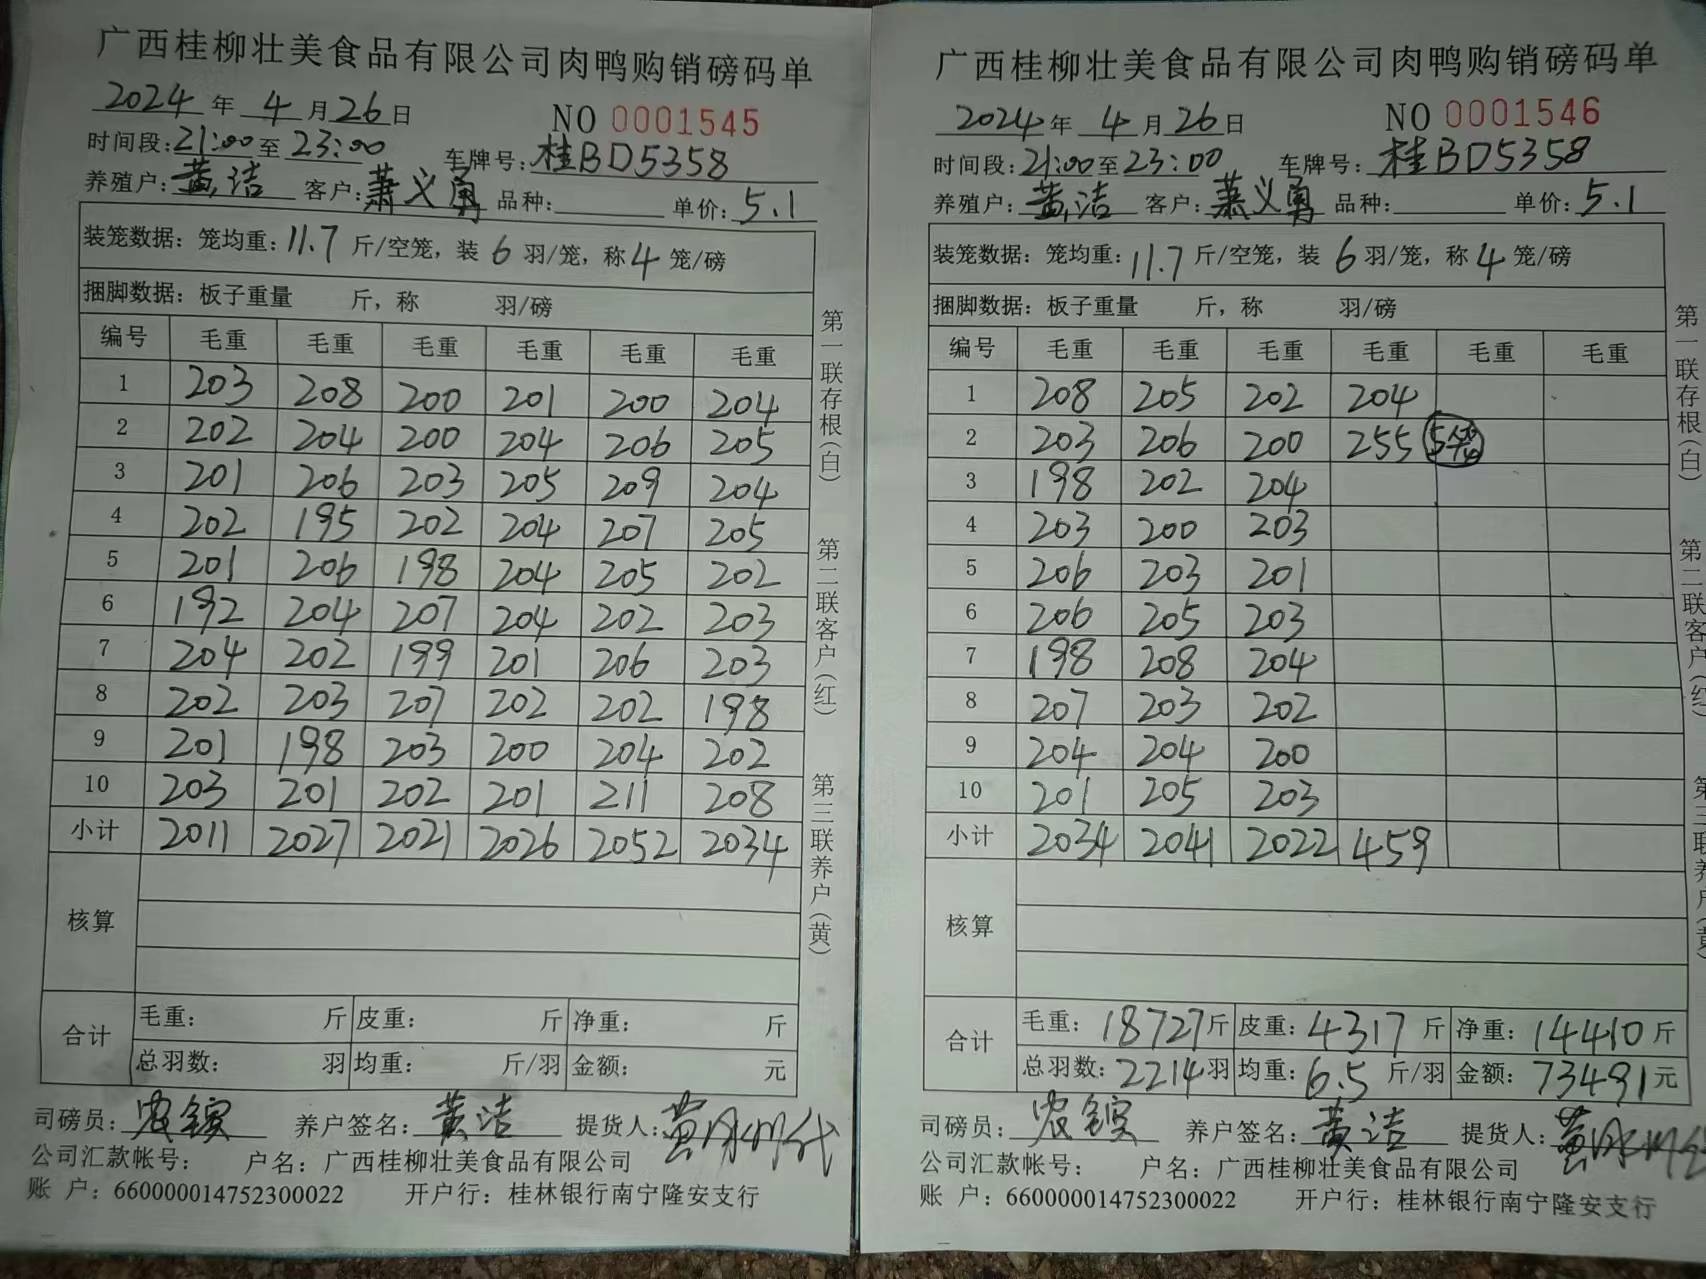 广西桂柳壮美食品有限公司肉鸭购销磅码单
2024 年 4 月 26 日 NO 0001545
时间段: 21:00 至 23:00 车牌号: 桂BD5358
养殖户: 黄洁 客户: 萧义勇 品种: 单价: 5.1
装笼数据: 笼均重: 11.7 斤/空笼, 装 6 羽/笼, 称 4 笼/磅
捆脚数据: 板子重量 斤, 称 羽/磅
编号 毛重 毛重 毛重 毛重 毛重 毛重
1 203 208 200 201 200 204
2 202 204 200 204 206 205
3 201 206 203 205 209 204
4 202 195 202 204 207 205
5 201 206 198 204 205 202
6 192 204 207 204 202 203
7 204 202 199 201 206 203
8 202 203 207 202 202 198
9 201 198 203 200 204 202
10 203 201 202 201 211 208
小计 2011 2027 2021 2026 2052 2034
核算
合计 毛重: 斤 皮重: 斤 净重: 斤
总羽数: 羽 均重: 斤/羽 金额: 元
司磅员: 养户签名: 黄洁 提货人:
公司汇款帐号: 户名: 广西桂柳壮美食品有限公司
账 户: 660000014752300022 开户行: 桂林银行南宁隆安支行
第一联存根(白) 第二联客户(红) 第三联养户(黄)
广西桂柳壮美食品有限公司肉鸭购销磅码单
2024 年 4 月 26 日 NO 0001546
时间段: 21:00 至 23:00 车牌号: 桂BD5358
养殖户: 黄洁 客户: 萧义勇 品种: 单价: 5.1
装笼数据: 笼均重: 11.7 斤/空笼, 装 6 羽/笼, 称 4 笼/磅
捆脚数据: 板子重量 斤, 称 羽/磅
编号 毛重 毛重 毛重 毛重 毛重 毛重
1 208 205 202 204
2 203 206 200 255 5
3 198 202 204
4 203 200 203
5 206 203 201
6 206 205 203
7 198 208 204
8 207 203 202
9 204 204 200
10 201 205 203
小计 2034 2041 2022 459
核算
合计 毛重: 18727 斤 皮重: 4317 斤 净重: 14410 斤
总羽数: 2214 羽 均重: 6.5 斤/羽 金额: 73491 元
司磅员: 养户签名: 黄洁 提货人:
公司汇款帐号: 户名: 广西桂柳壮美食品有限公司
账 户: 660000014752300022 开户行: 桂林银行南宁隆安支行
第一联存根(白) 第二联客户(红) 第三联养户(黄)